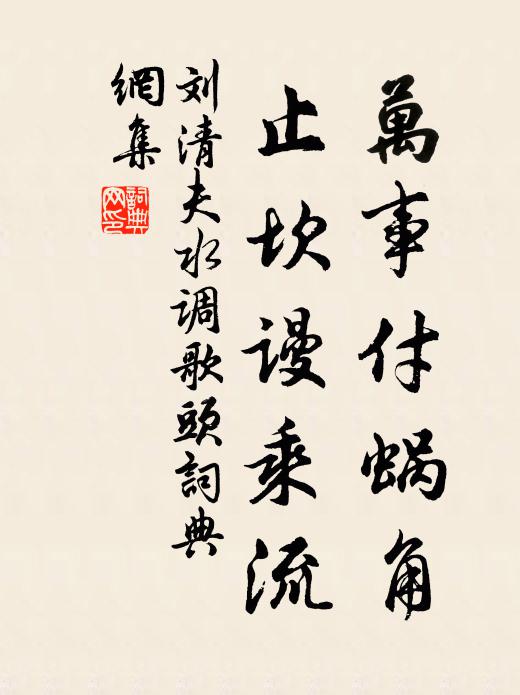 萬事付蜗角
止坎谩乘流
刘清夫水调歌頭詞典
網集
詞典網印